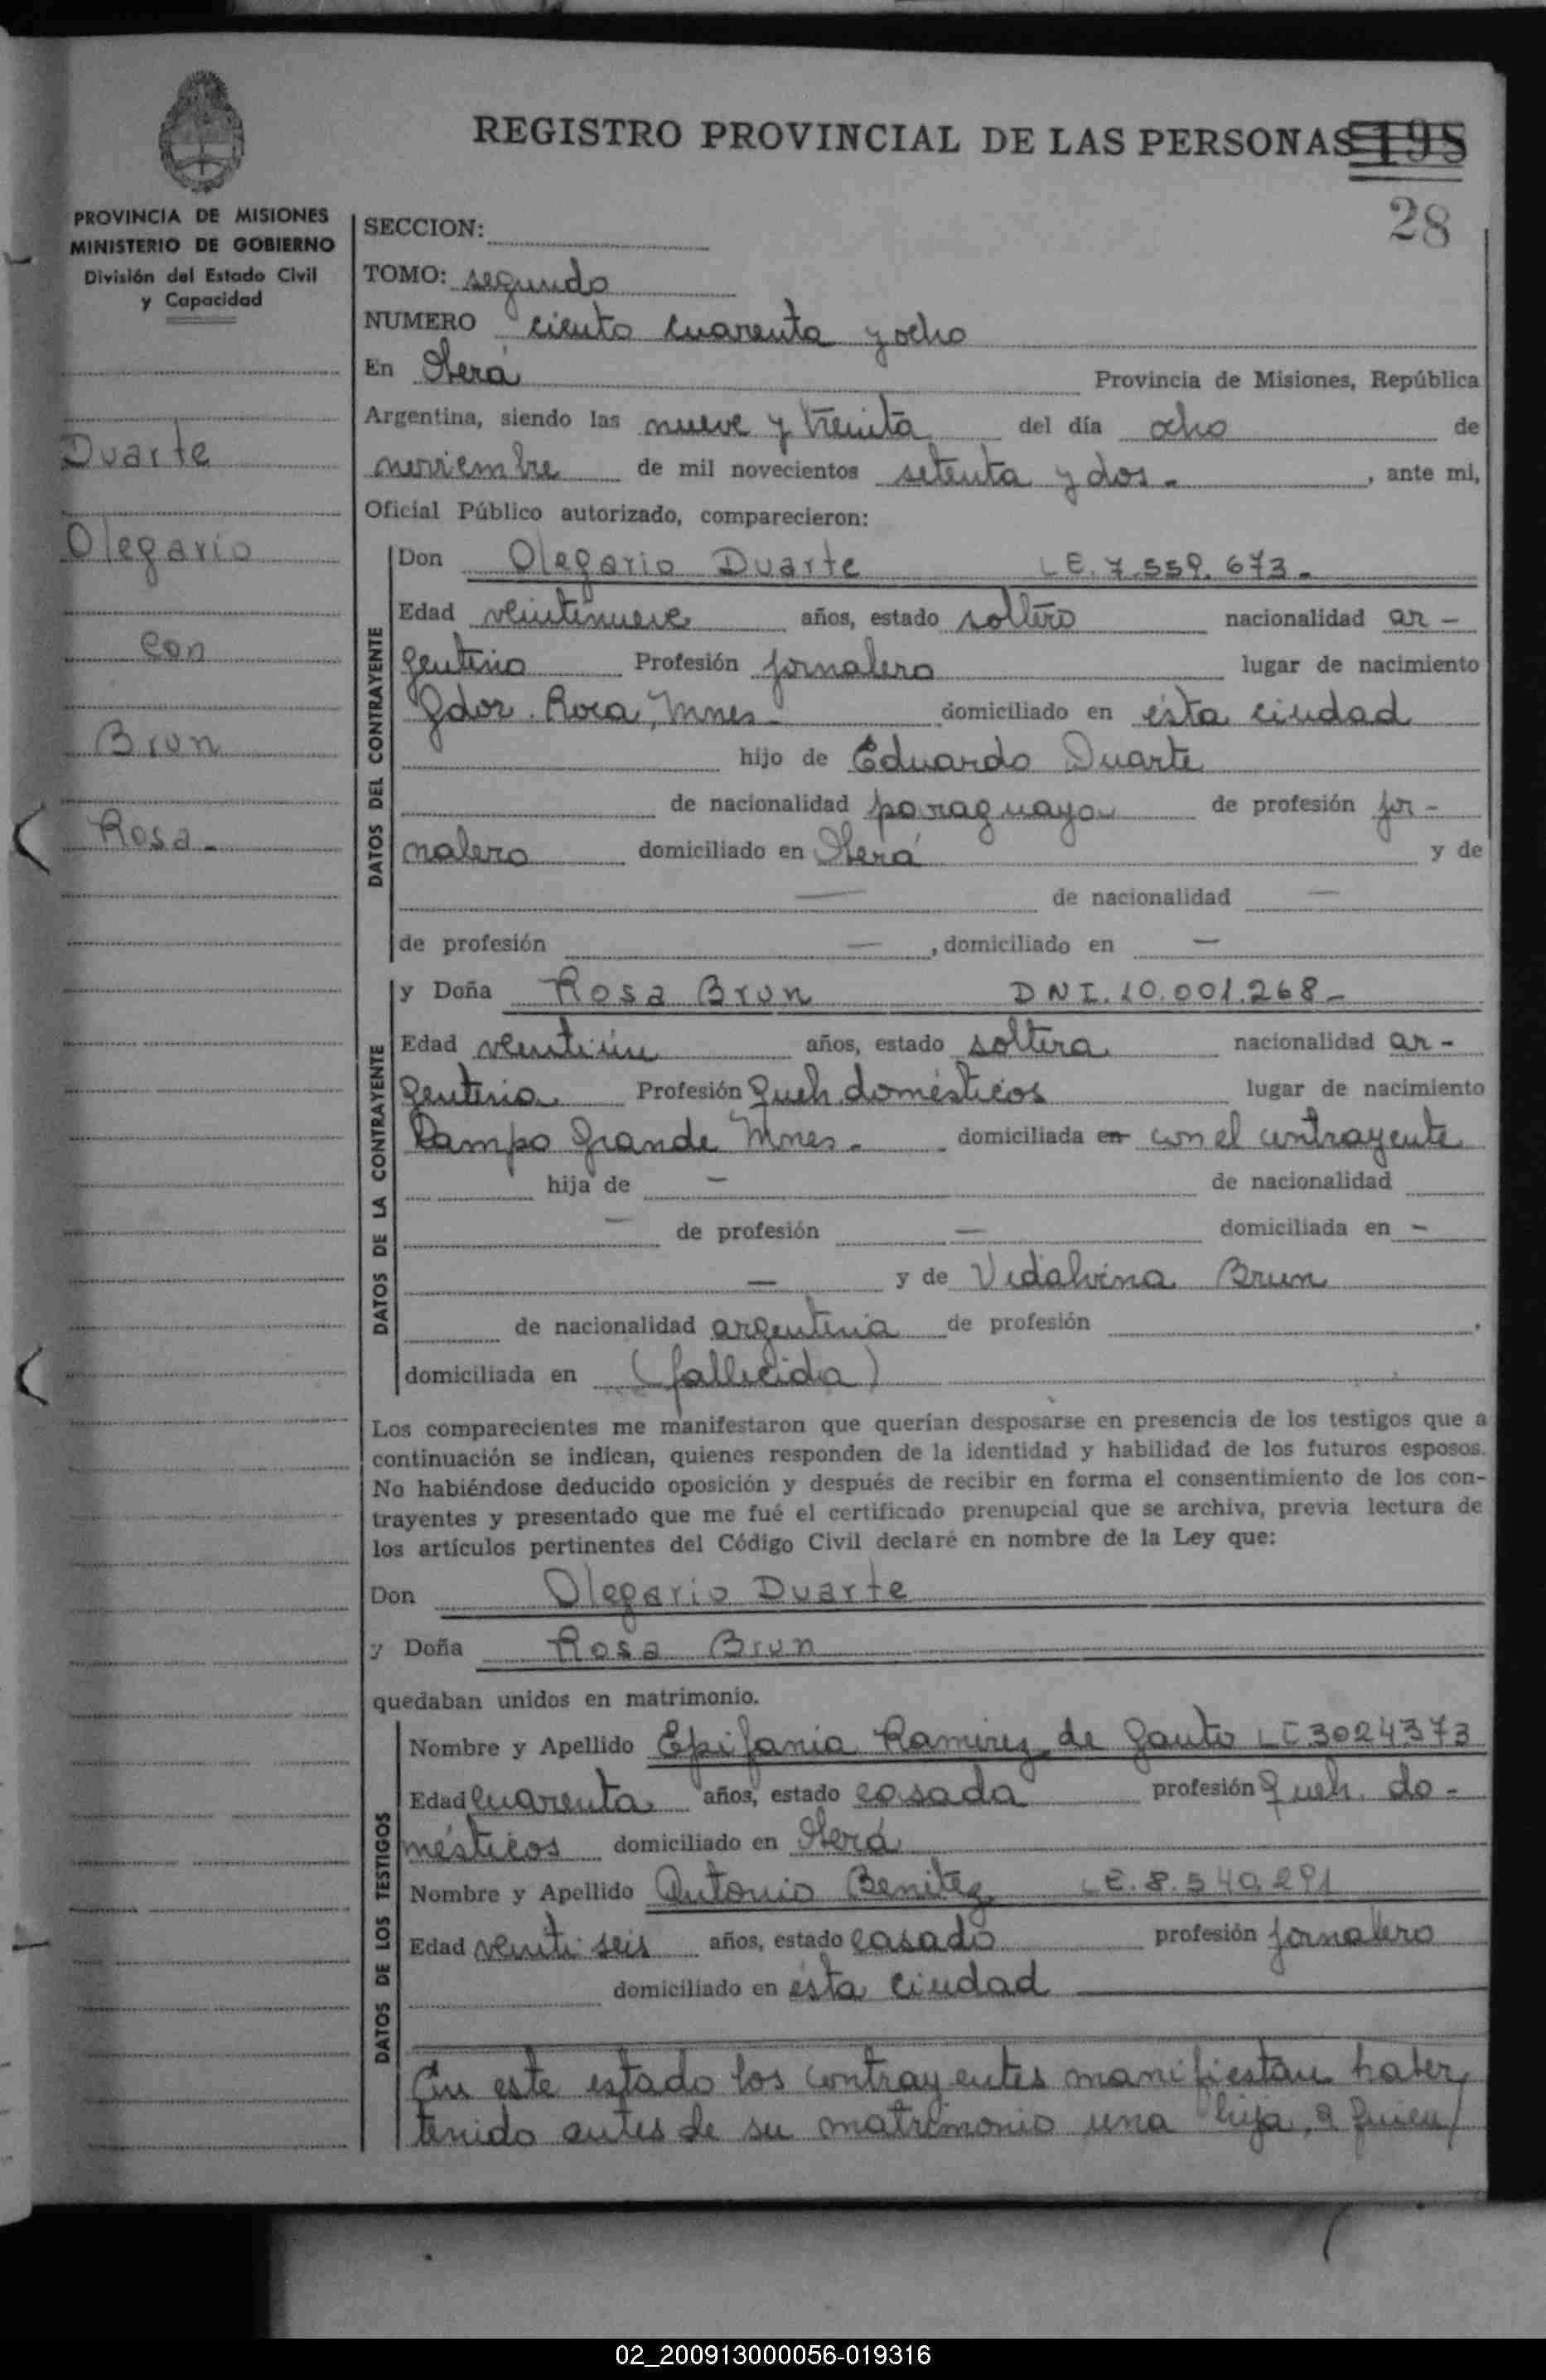 REGISTRO PROVINCIAL DE LAS PERSONAS 198
28
PROVINCIA DE MISIONES
MINISTERIO DE GOBIERNO
División del Estado Civil
y Capacidad
Duarte
Olegario
con
Brun
Rosa.
SECCION:
TOMO: segundo
NUMERO ciento cuarenta y ocho
En Oberá Provincia de Misiones, República
Argentina, siendo las nueve y treinta del día ocho de
noviembre de mil novecientos setenta y dos. , ante mi,
Oficial Público autorizado, comparecieron:
DATOS DEL CONTRAYENTE
Don Olegario Duarte L.E. 7.559.673.
Edad veintinueve años, estado soltero nacionalidad ar-
gentino Profesión jornalero lugar de nacimiento
Gdor. Roca, Mnes. domiciliado en ésta ciudad
hijo de Eduardo Duarte
de nacionalidad paraguayo de profesión jor-
nalero domiciliado en Oberá y de
— de nacionalidad —
de profesión — , domiciliado en —
DATOS DE LA CONTRAYENTE
y Doña Rosa Brun DNI. 10.001.268-
Edad veintiún años, estado soltera nacionalidad ar-
gentina Profesión Queh. domésticos lugar de nacimiento
Campo Grande Mnes. domiciliada en con el contrayente
hija de — de nacionalidad
— de profesión — domiciliada en -
— y de Vidalvina Brun
de nacionalidad argentina de profesión .
domiciliada en (fallecida)
Los comparecientes me manifestaron que querían desposarse en presencia de los testigos que a
continuación se indican, quienes responden de la identidad y habilidad de los futuros esposos.
No habiéndose deducido oposición y después de recibir en forma el consentimiento de los con-
trayentes y presentado que me fué el certificado prenupcial que se archiva, previa lectura de
los artículos pertinentes del Código Civil declaré en nombre de la Ley que:
Don Olegario Duarte
y Doña Rosa Brun
quedaban unidos en matrimonio.
DATOS DE LOS TESTIGOS
Nombre y Apellido Epifania Ramirez de Gauto LC 3024373
Edad cuarenta años, estado casada profesión Queh. do-
mésticos domiciliado en Oberá
Nombre y Apellido Antonio Benitez L.E. 8.540.291
Edad veinti seis años, estado casado profesión jornalero
domiciliado en ésta ciudad
En este estado los contrayentes manifiestan haber
tenido antes de su matrimonio una hija, a quien
02_200913000056-019316